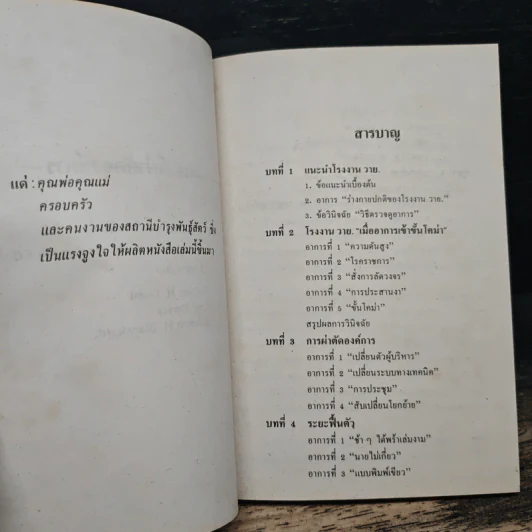 แด่ : คุณพ่อคุณแม่
ครอบครัว
และคนงานของสถานีบำรุงพันธุ์สัตว์ ซึ่ง
เป็นแรงจูงใจให้ผลิตหนังสือเล่มนี้ขึ้นมา
สารบาญ
บทที่ 1 แนะนำโรงงาน วาย.
1. ข้อแนะนำเบื้องต้น
2. อาการ "ร่างกายปกติของโรงงาน วาย."
3. ข้อวินิจฉัย "วิธีตรวจดูอาการ"
บทที่ 2 โรงงาน วาย. "เมื่ออาการเข้าขั้นโคม่า"
อาการที่ 1 "ความดันสูง"
อาการที่ 2 "โรคราชการ"
อาการที่ 3 "สั่งการลัดวงจร"
อาการที่ 4 "การประสานงา"
อาการที่ 5 "ขั้นโคม่า"
สรุปผลการวินิจฉัย
บทที่ 3 การผ่าตัดองค์การ
อาการที่ 1 "เปลี่ยนตัวผู้บริหาร"
อาการที่ 2 "เปลี่ยนระบบทางเทคนิค"
อาการที่ 3 "การประชุม"
อาการที่ 4 "สับเปลี่ยนโยกย้าย"
บทที่ 4 ระยะฟื้นตัว
อาการที่ 1 "ช้า ๆ ได้พร้าเล่มงาม"
อาการที่ 2 "นายไม่เกี่ยว"
อาการที่ 3 "แบบพิมพ์เขียว"